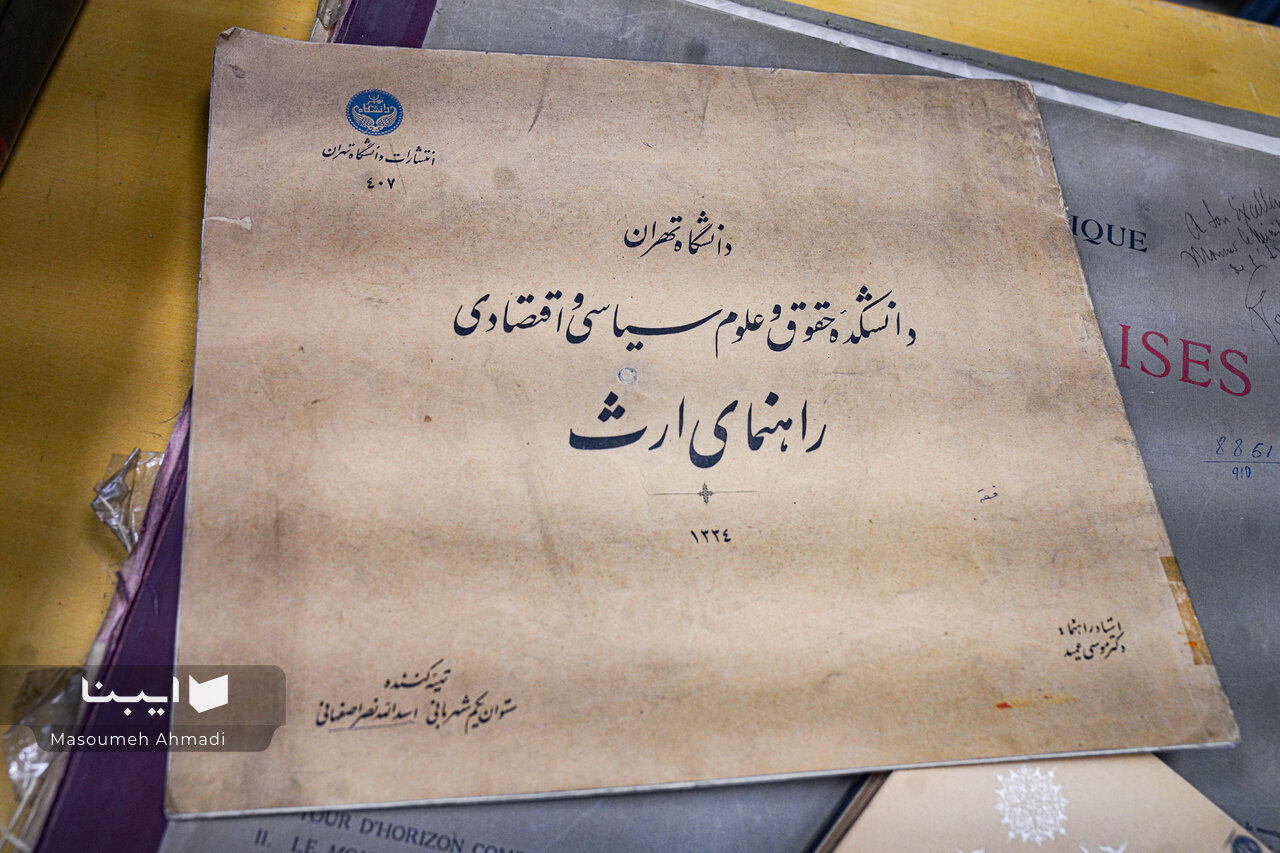 دانشگاه تهران
انتشارات دانشگاه تهران
٤٠٧
دانشگاه تهران
دانشکدهٔ حقوق و علوم سیاسی و اقتصادی
راهنمای ارث
١٣٣٤
فقه
استاد راهنما:
دکتر موسی عمید
تهیه کننده
ستوان یکم شهربانی اسدالله نصر اصفهانی
IQUE
A Son Excellen
ISES
8861
910
TOUR D'HORIZON COM
II. LE MON
ایبنا
Masoumeh Ahmadi